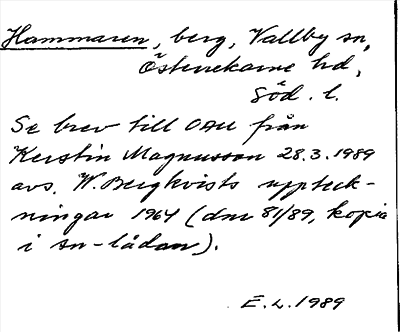 Hammaren, berg, Vallby sn,
Österrekarne hd,
Söd. l.
Se brev till OAU från
Kerstin Magnusson 28.3.1989
avs. W. Bergkvists uppteck-
ningar 1964 (dnr 81/89, kopia
i sn-lådan).
E.L. 1989